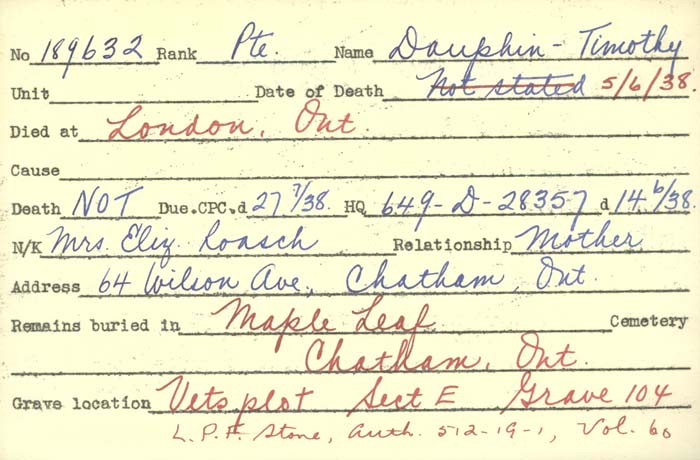 No 189632 Rank Pte. Name Dauphin - Timothy
Unit Date of Death Not stated 5/6/38.
Died at London, Ont.
Cause
Death NOT Due.CPC.d 27 7/38. HQ 649-D-28357 d 14 6/38.
N/K Mrs. Eliz. Loasch Relationship Mother
Address 64 Wilson Ave, Chatham, Ont.
Remains buried in Maple Leaf Cemetery
Chatham, Ont.
Grave location Vets plot Sect E Grave 104
L.P.F. Stone, Auth. 512-19-1, Vol. 60